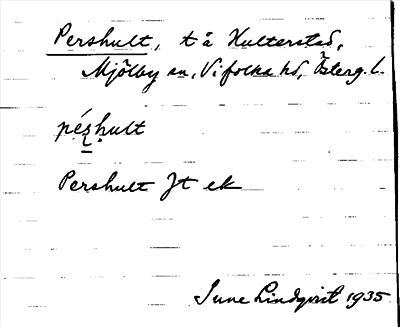 Pershult, t å Hulterstad,
Mjölby sn, Vifolka hd, Österg. l.
pẹ́ʂhult
Pershult Jt ek
Sune Lindqvist 1935